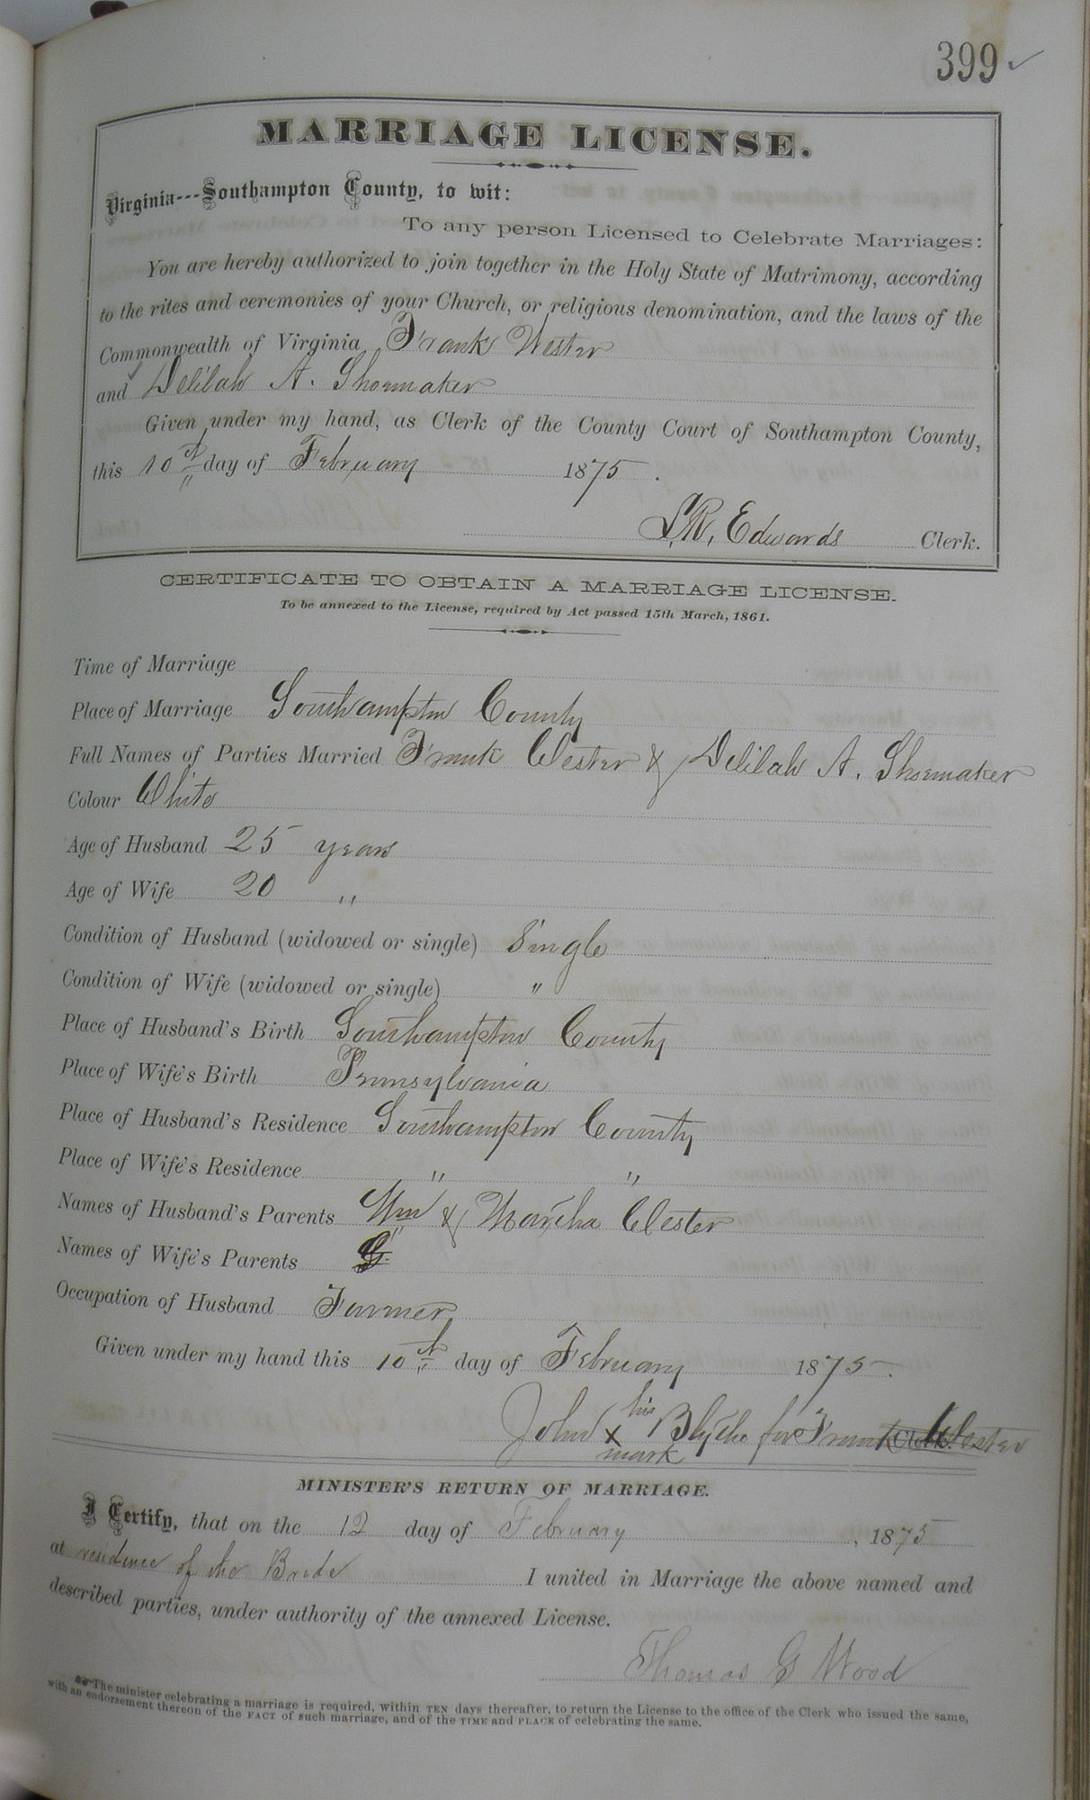 399 ✓
MARRIAGE LICENSE.
Virginia---Southampton County, to wit:
To any person Licensed to Celebrate Marriages:
You are hereby authorized to join together in the Holy State of Matrimony, according
to the rites and ceremonies of your Church, or religious denomination, and the laws of the
Commonwealth of Virginia Frank Wester
and Delilah A. Shoemaker
Given under my hand, as Clerk of the County Court of Southampton County,
this 10th day of February 1875.
L. R. Edwards Clerk.
CERTIFICATE TO OBTAIN A MARRIAGE LICENSE.
To be annexed to the License, required by Act passed 15th March, 1861.
Time of Marriage
Place of Marriage Southampton County
Full Names of Parties Married Frank Wester & Delilah A. Shoemaker
Colour White
Age of Husband 25 years
Age of Wife 20 "
Condition of Husband (widowed or single) Single
Condition of Wife (widowed or single) "
Place of Husband's Birth Southampton County
Place of Wife's Birth Pennsylvania
Place of Husband's Residence Southampton County
Place of Wife's Residence " "
Names of Husband's Parents Wm & Martha Wester
Names of Wife's Parents
Occupation of Husband Farmer
Given under my hand this 10th day of February 1875.
John his x mark Blythe for Frank Wester Clerk.
MINISTER'S RETURN OF MARRIAGE.
I Certify, that on the 12 day of February, 1875
at residence of the Bride I united in Marriage the above named and
described parties, under authority of the annexed License.
Thomas G Wood
The minister celebrating a marriage is required, within TEN days thereafter, to return the License to the office of the Clerk who issued the same,
with an endorsement thereon of the FACT of such marriage, and of the TIME and PLACE of celebrating the same.